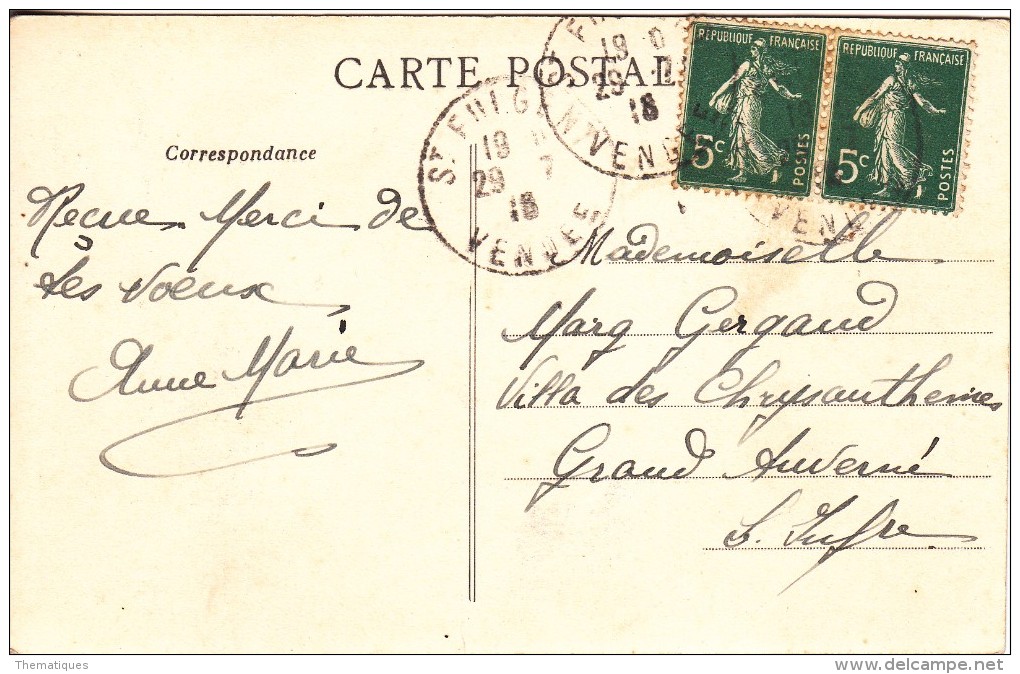 CARTE POSTALE
Correspondance
Reçue Merci de
tes voeux
Anne Marie
ST FULG
19
29 7
18
VENDEE
19 0
29
18
VENDEE
REPUBLIQUE FRANÇAISE
5c
POSTES
REPUBLIQUE FRANÇAISE
5c
POSTES
Mademoiselle
Marg Gergaud
Villa des Chrysanthemes
Grand Auverné
L. Infre
Thematiques
www.delcampe.net